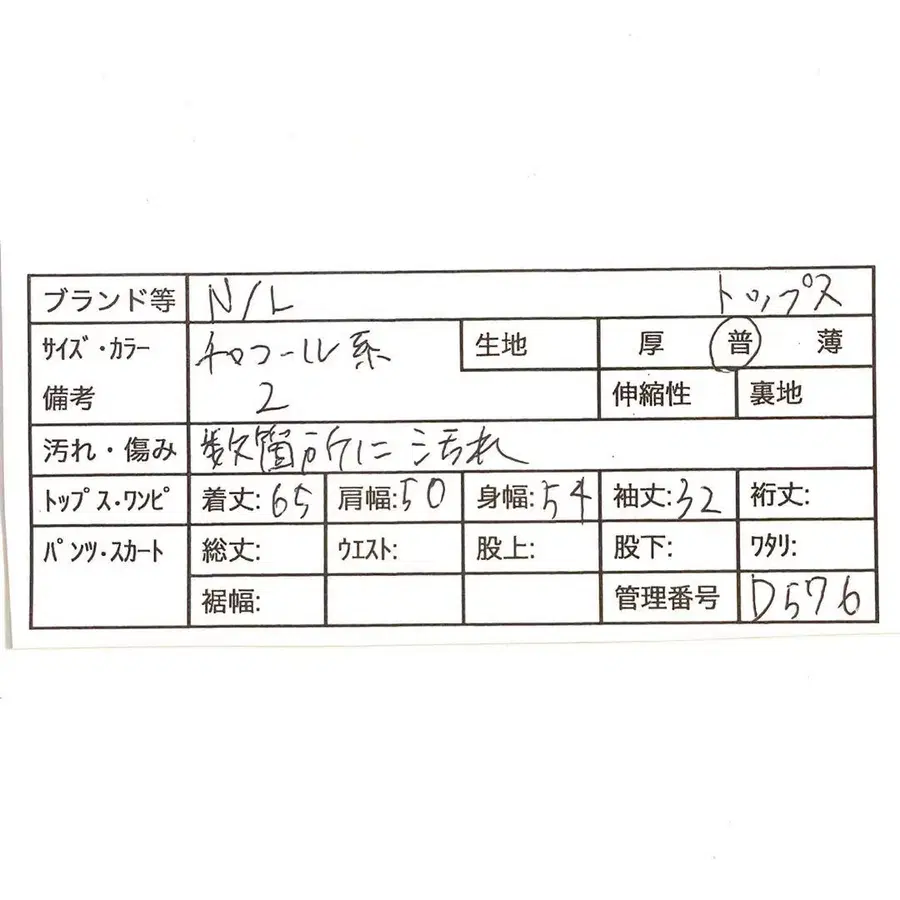 ブランド等 N/L トップス
サイズ・カラー チャコール系 生地 厚 普 薄
備考 2 伸縮性 裏地
汚れ・傷み 数箇所に汚れ
トップス・ワンピ 着丈:65 肩幅:50 身幅:54 袖丈:32 裄丈:
パンツ・スカート 総丈: ウエスト: 股上: 股下: ワタリ:
裾幅: 管理番号 D576